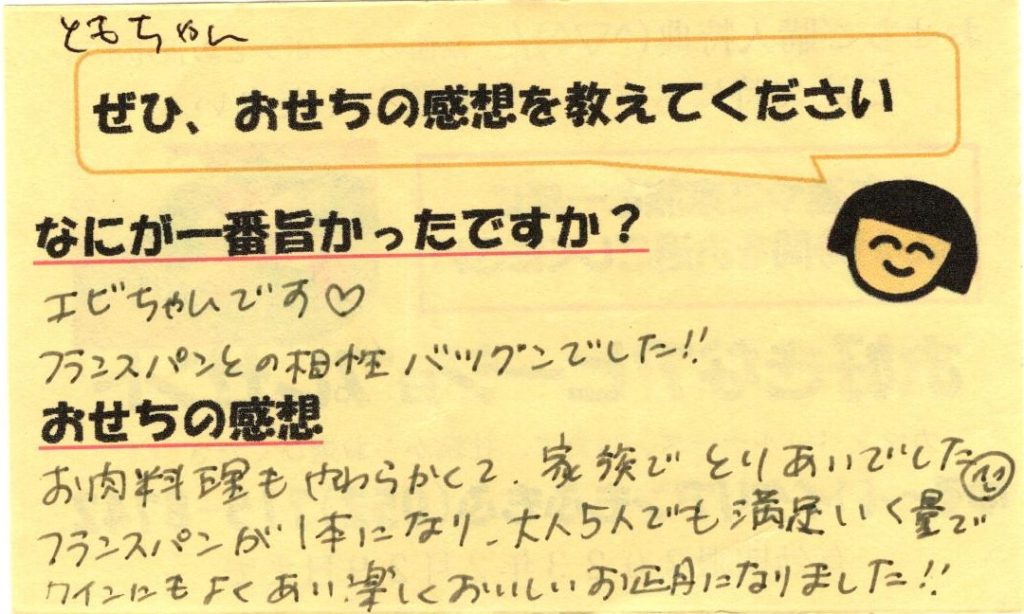 ともちゃん
ぜひ、おせちの感想を教えてください
なにが一番旨かったですか？
エビちゃんです♡
フランスパンとの相性バツグンでした!!
おせちの感想
お肉料理もやわらかくて、家族でとりあいでした
フランスパンが1本になり、大人5人でも満足いく量で
ワインにもよくあい楽しくおいしいお正月になりました!!